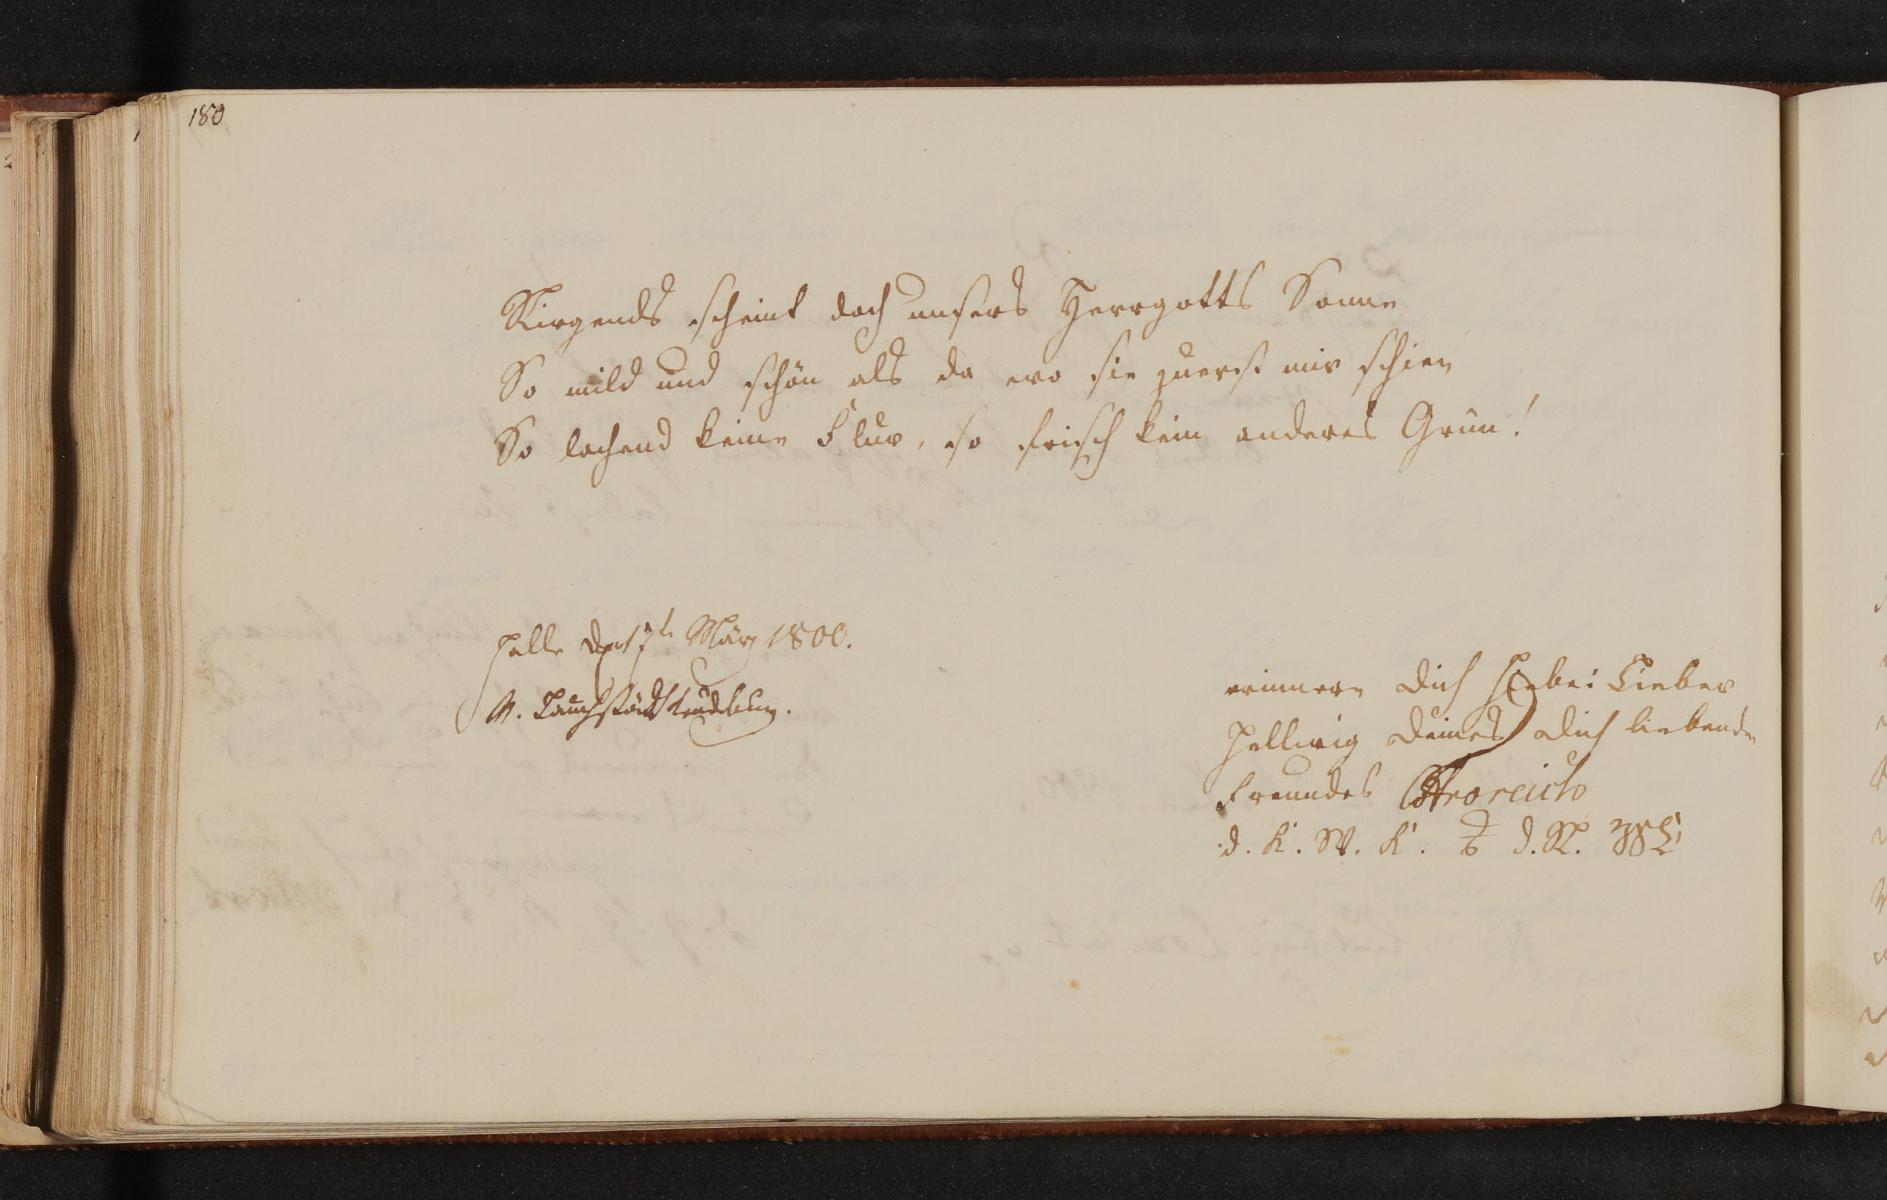 180
Nirgends scheint doch unsers Herrgotts Sonne
So mild und schön als da wo sie zuerst mir schien
So lachend keine Flur, so frisch kein anderes Grün!
Halle den 17t März 1800.
erinnere Dich hiebei Lieber
Hellwig Deines Dich liebenden
Freundes
d. K. W. K.